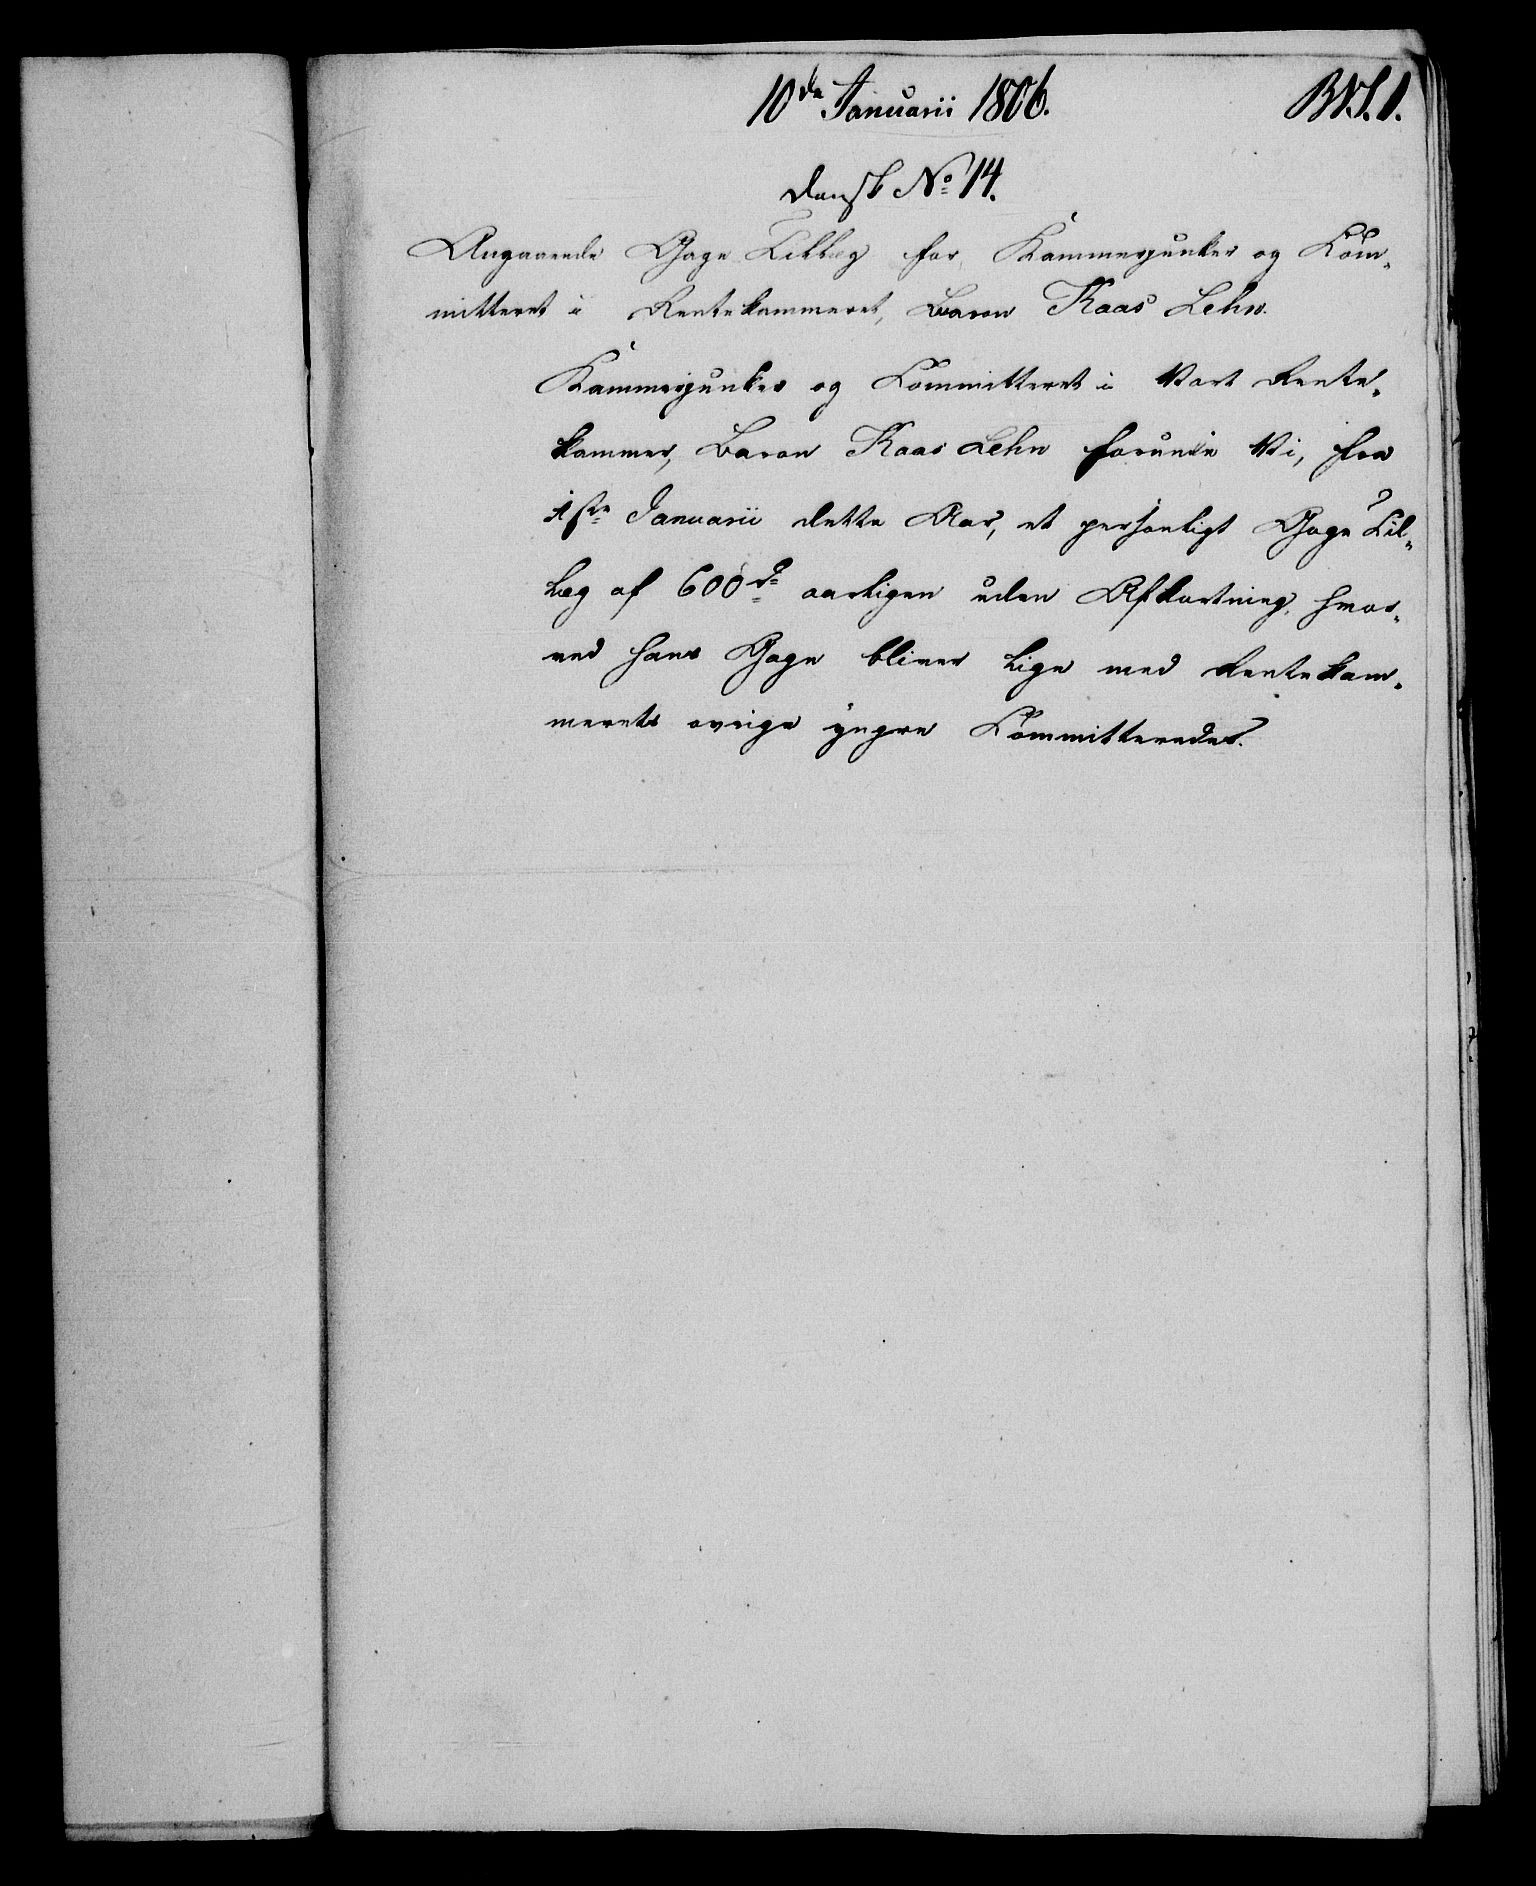 10de Januarii 1806.
dansk No 14.
Angaaende Gage Tillæg for Kammerjunker og Com-
mitteret i Rentekammeret, Baron Kaas Lehn.
Kammerjunker og Committeret i Vort Rente-
kammer, Baron Kaas Lehn forunde Vi, fra
1ste Januarii dette Aar, et personligt Gage Til-
læg af 600 rd aarligen uden Afkortning, hvor-
ved hans Gage bliver lige med Rentekam-
merets øvrige yngre Committeredes.